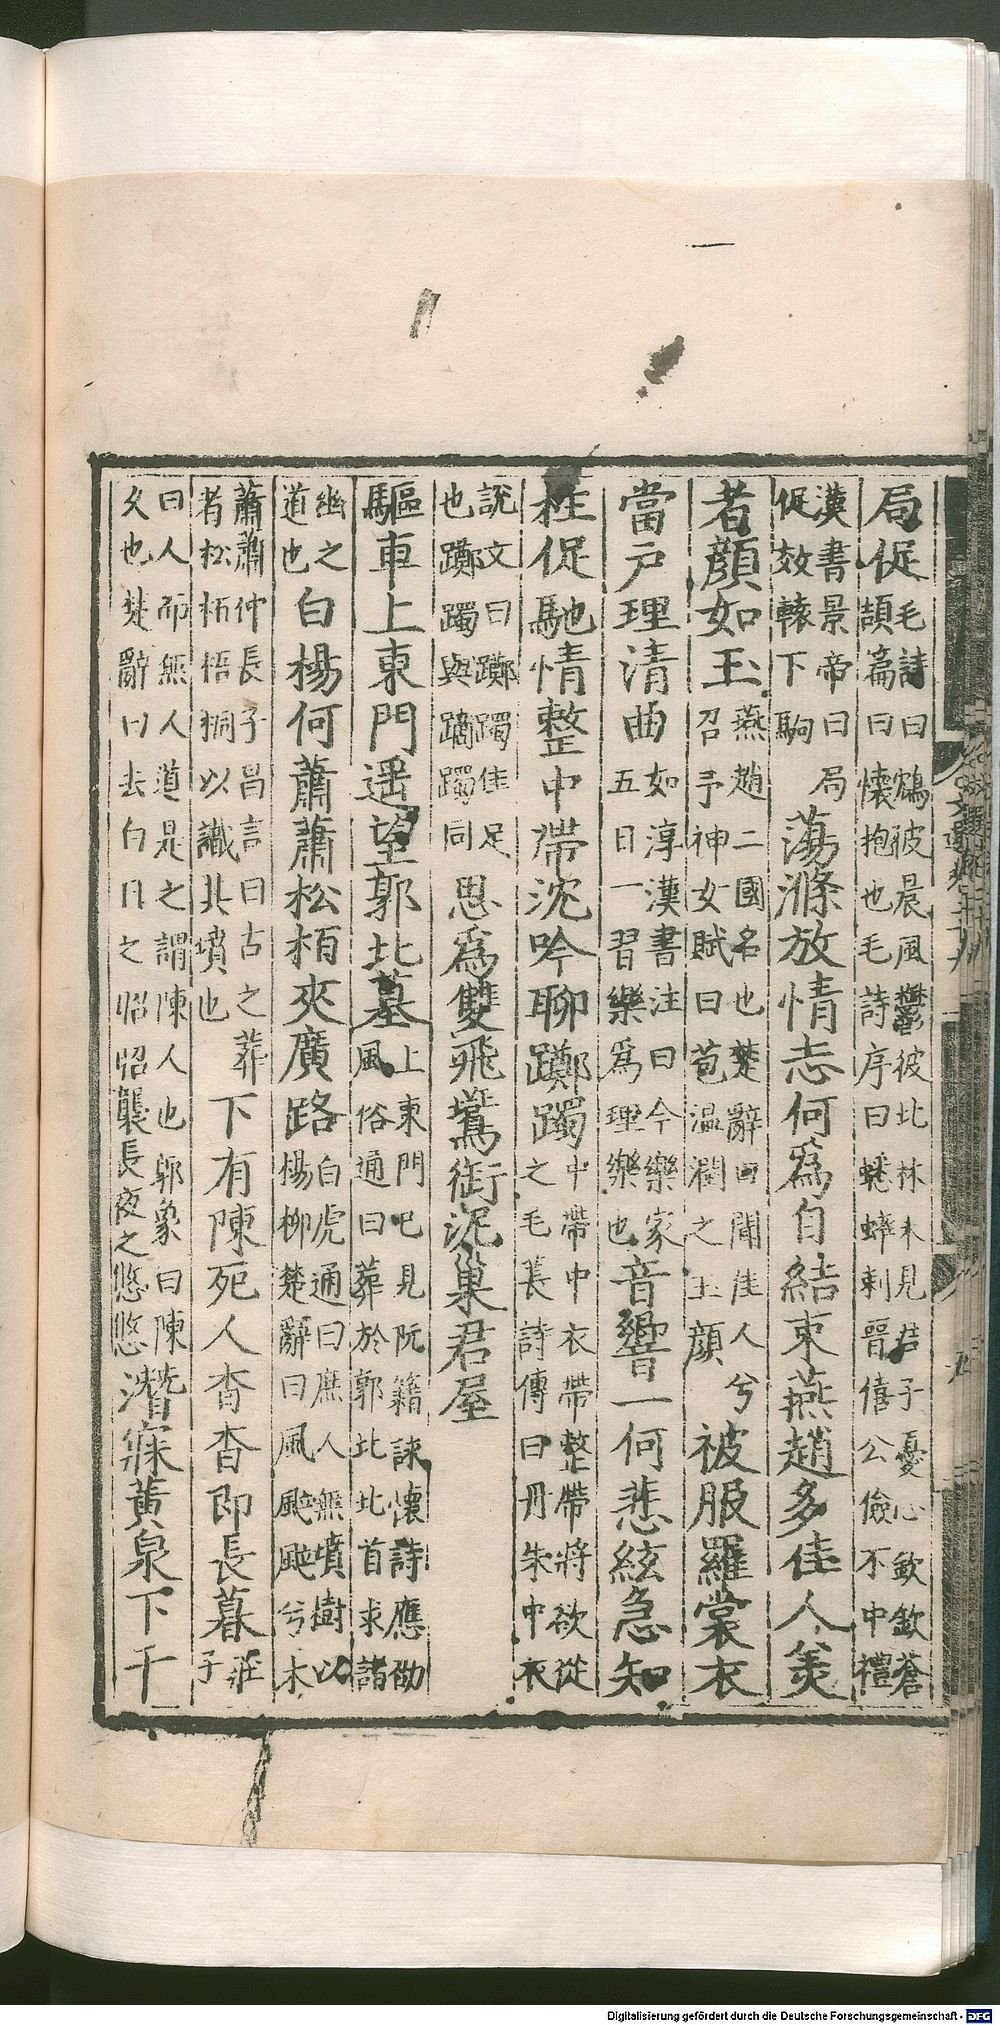 局促毛詩曰鴥彼晨風鬱彼北林未見君子憂心欽欽蒼頡篇曰懷抱也毛詩序曰蟋蟀刺晉僖公儉不中禮
漢書景帝曰局促效轅下駒蕩滌放情志何爲自結束燕趙多佳人美
者顏如玉燕趙二國名也楚辭曰聞佳人兮召予神女賦曰苞温潤之玉顏被服羅裳衣
當戶理清曲如淳漢書注曰今樂家五日一習樂爲理樂也音響一何悲絃急知
柱促馳情整中帶沈吟聊躑躅中帶中衣帶整帶將欲從之毛萇詩傳曰丹朱中衣
說文曰躑躅住足也躑躅與蹢躅同思爲雙飛鷰銜泥巢君屋
驅車上東門遥望郭北墓上東門已見阮籍詠懷詩應劭風俗通曰葬於郭北北首求諸
幽之道也白楊何蕭蕭松栢夾廣路白虎通曰庶人無墳樹以楊柳楚辭曰風颮颮兮木
蕭蕭仲長子昌言曰古之葬者松栢梧桐以識其墳也下有陳死人杳杳即長暮莊子
曰人而無人道是之謂陳人也郭象曰陳久也楚辭曰去白日之昭昭襲長夜之悠悠潛寐黃泉下千
Digitalisierung gefördert durch die Deutsche Forschungsgemeinschaft - DFG